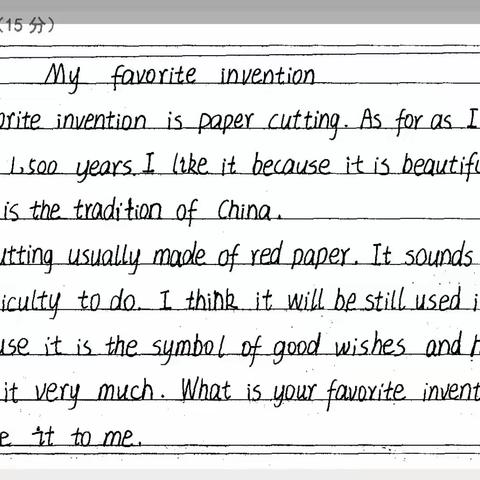 (15 分)
My favorite invention
orite invention is paper cutting. As for as I
1,500 years. I like it because it is beautifu
is the tradition of China.
utting usually made of red paper. It sounds
iculty to do. I think it will be still used i
use it is the symbol of good wishes and h
it very much. What is your favorite invent
e it to me.